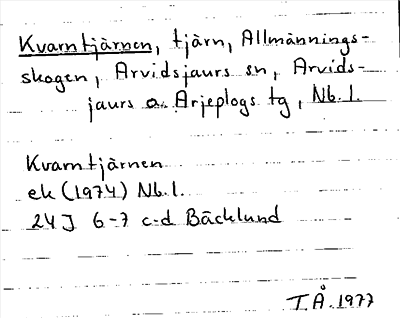 Kvarntjärnen, tjärn, Allmännings-
skogen, Arvidsjaurs sn, Arvids-
jaurs o. Arjeplogs tg, Nb. l.
Kvarntjärnen
ek (1974) Nb. l.
24 J 6-7 c-d Bäcklund
T Å. 1977